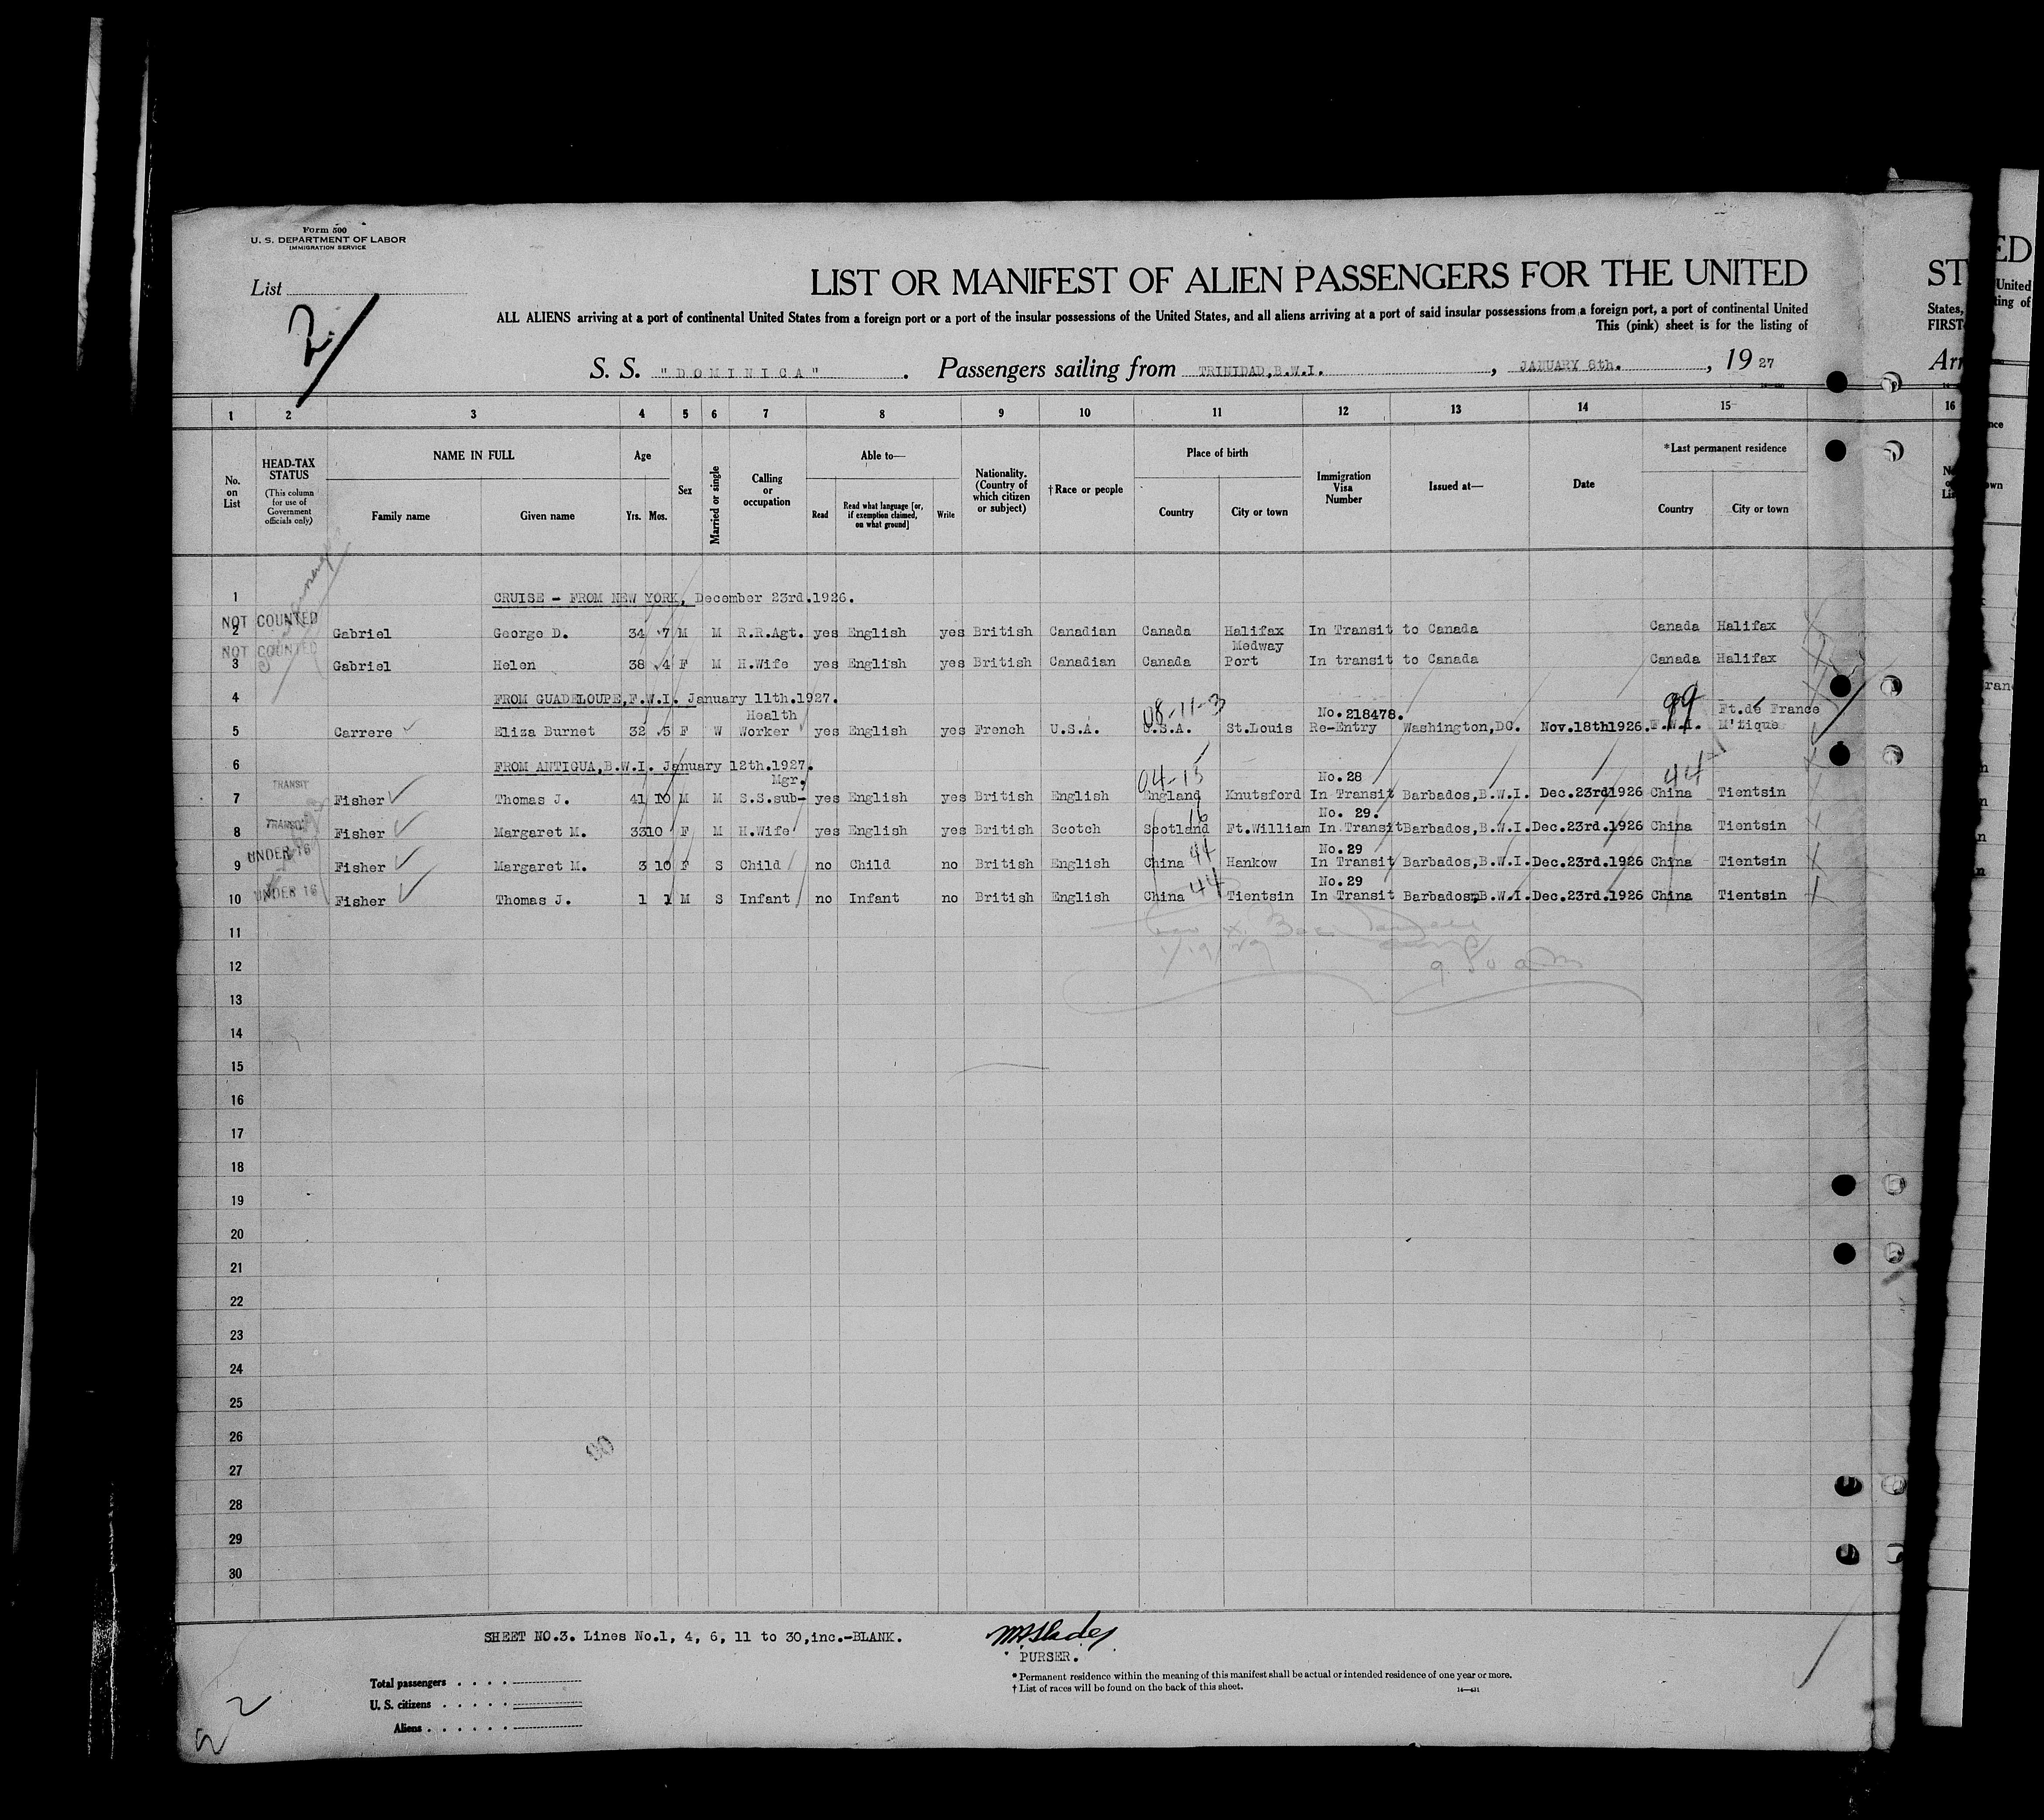 Form 500
U. S. DEPARTMENT OF LABOR
IMMIGRATION SERVICE
List
2
LIST OR MANIFEST OF ALIEN PASSENGERS FOR THE UNITED
ALL ALIENS arriving at a port of continental United States from a foreign port or a port of the insular possessions of the United States, and all aliens arriving at a port of said insular possessions from a foreign port, a port of continental United
This (pink) sheet is for the listing of
S. S. "DOMINICA". Passengers sailing from TRINIDAD,B.W.I., JANUARY 8th., 1927
1 2 3 4 5 6 7 8 9 10 11 12 13 14 15 16
No. on List
HEAD-TAX STATUS
(This column for use of Government officials only)
NAME IN FULL
Family name Given name
Age
Yrs. Mos.
Sex
Married or single
Calling or occupation
Able to—
Read
Read what language [or, if exemption claimed, on what ground]
Write
Nationality. (Country of which citizen or subject)
†Race or people
Place of birth
Country City or town
Immigration Visa Number
Issued at—
Date
*Last permanent residence
Country City or town
1 CRUISE - FROM NEW YORK, December 23rd.1926.
NOT COUNTED
2 Gabriel George D. 34 7 M M R.R.Agt. yes English yes British Canadian Canada Halifax In Transit to Canada Canada Halifax
NOT COUNTED Medway
3 Gabriel Helen 38 4 F M H.Wife yes English yes British Canadian Canada Port In transit to Canada Canada Halifax
4 FROM GUADELOUPE,F.W.I. January 11th.1927.
Health 08-11-3 No.218478. 99 Ft.de France
5 Carrere Eliza Burnet 32 5 F W Worker yes English yes French U.S.A. U.S.A. St.Louis Re-Entry Washington,DC. Nov.18th1926. F.W.I. M'tique
6 FROM ANTIGUA,B.W.I. January 12th.1927.
TRANSIT Mgr. 04-15 No.28 44
7 Fisher Thomas J. 41 10 M M S.S.sub- yes English yes British English England Knutsford In Transit Barbados,B.W.I. Dec.23rd1926 China Tientsin
TRANSIT 16 No. 29.
8 Fisher Margaret M. 33 10 F M H.Wife yes English yes British Scotch Scotland Ft.William In Transit Barbados,B.W.I. Dec.23rd.1926 China Tientsin
UNDER 16 44 No.29
9 Fisher Margaret M. 3 10 F S Child no Child no British English China Hankow In Transit Barbados,B.W.I. Dec.23rd.1926 China Tientsin
UNDER 16 44 No.29
10 Fisher Thomas J. 1 1 M S Infant no Infant no British English China Tientsin In Transit Barbados,B.W.I. Dec.23rd.1926 China Tientsin
11
12
13
14
15
16
17
18
19
20
21
22
23
24
25
26
27
28
29
30
SHEET NO.3. Lines No.1, 4, 6, 11 to 30,inc.-BLANK.
PURSER.
* Permanent residence within the meaning of this manifest shall be actual or intended residence of one year or more.
† List of races will be found on the back of this sheet.
Total passengers
U. S. citizens
Aliens
2
2